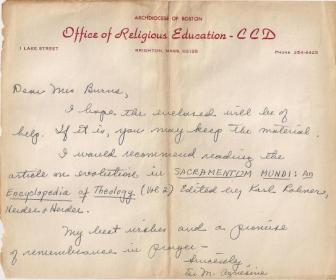 ARCHDIOCESE OF BOSTON
Office of Religious Education - CCD
1 LAKE STREET
BRIGHTON, MASS. 02135
PHONE 254-4425
Dear Mrs Burns,
I hope the enclosed will be of
help. If it is, you may keep the material.
I would recommend reading the
article on evolution in SACRAMENTUM MUNDI: An
Encyclopedia of Theology (Vol 2) Edited by Karl Rahner,
Herder & Herder.
My best wishes and a promise
of remembrance in prayer -
Sincerely,
Sr M.